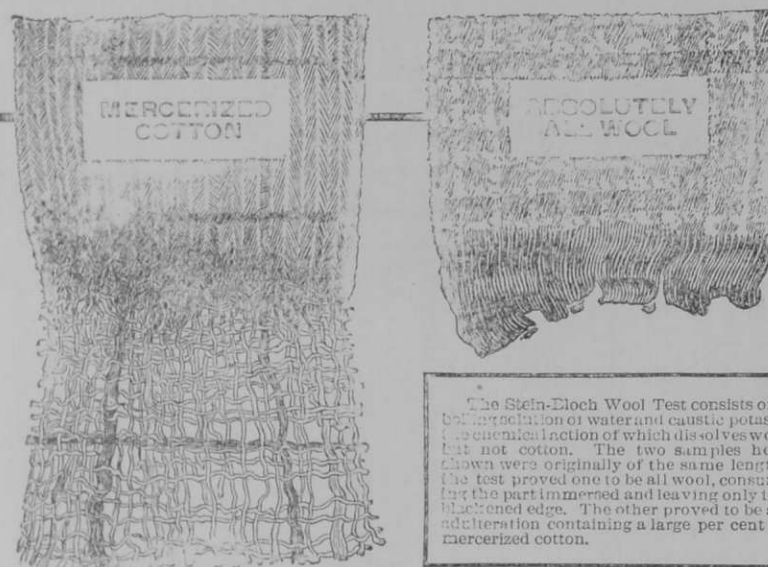 MERCERIZED
COTTON
ABSOLUTELY
ALL WOOL
The Stein-Bloch Wool Test consists o
boiling solution of water and caustic potas
the chemical action of which dissolves wo
but not cotton. The two samples he
shown were originally of the same lengt
the test proved one to be all wool, consu
ing the part immersed and leaving only t
blackened edge. The other proved to be a
adulteration containing a large per cent
mercerized cotton.